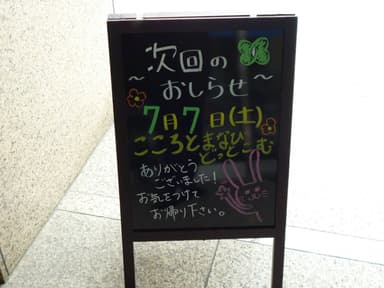 次回の
～おしらせ～
7月7日(土)
こころとまなび
どっとこむ
ありがとう
ございました!
お気をつけて
お帰り下さい。